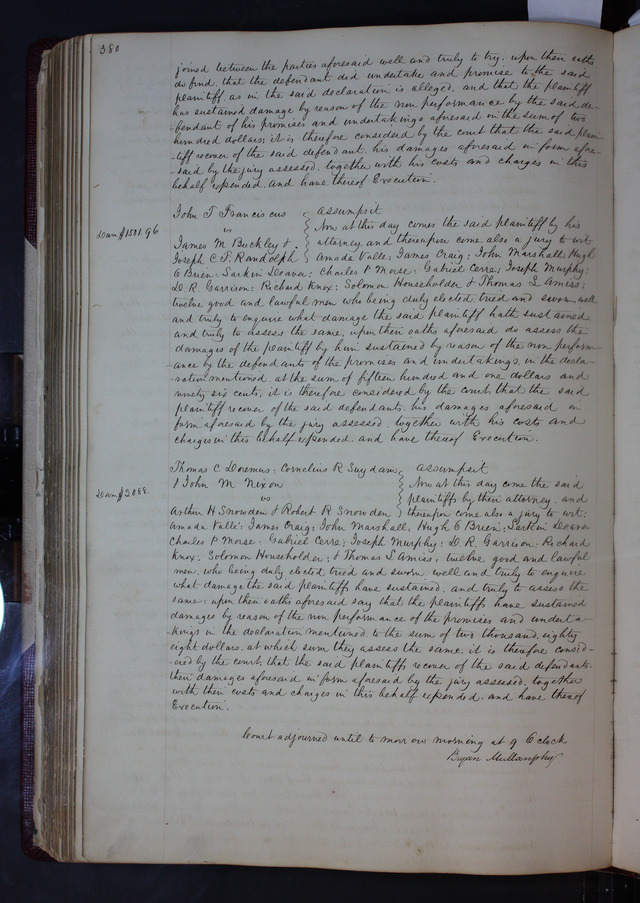 380
joined between the parties aforesaid well and truly to try, upon their oaths
do find, that the defendant did undertake and promise to the said
plaintiff, as in the said declaration is alleged, and that the plaintiff
has sustained damage by reason of the non performance by the said de-
fendant of his promises and undertakings aforesaid in the sum of two
hundred dollars; it is therefore considered by the court that the said plain-
tiff recover of the said defendant, his damages aforesaid in form afore-
said by the jury assessed, together with his costs and charges in this
behalf expended, and have thereof Execution.
John T Franciscus } assumpsit
Dam $1501.96
vs } Now at this day comes the said plaintiff by his
James M Buckley & } attorney, and thereupon come also a jury to wit
Joseph C. F. Randolph } Amada Valle; James Craig; John Marshall; Hugh
O Brien; Larkin Deaver; Charles P Morse; Gabriel Cerre; Joseph Murphy;
D. R. Garrison; Richard Knox; Solomon Householder & Thomas L Amiss;
twelve good and lawful men who being duly elected, tried and sworn, well
and truly to enquire what damage the said plaintiff hath sustained
and truly to assess the same, upon their oaths aforesaid do assess the
damages of the plaintiff by him sustained by reason of the non perform-
ance by the defendants of the promises and undertakings, in the decla-
ration mentioned, at the sum of fifteen hundred and one dollars and
ninety six cents, it is therefore considered by the court, that the said
plaintiff recover of the said defendants, his damages aforesaid in
form aforesaid by the jury assessed, together with his costs and
charges in this behalf expended, and have thereof Execution.
Thomas C Doremus; Cornelius R Suydam } assumpsit
& John M Nixon } Now at this day come the said
Dam $2088.
vs } plaintiffs by their attorney, and
Arthur H Snowden & Robert R Snowden } thereupon come also a jury to wit;
Amada Valle; James Craig; John Marshall; Hugh O Brien; Larkin Deaver
Charles P Morse; Gabriel Cerre; Joseph Murphy; D. R. Garrison; Richard
Knox; Solomon Householder; & Thomas L Amiss; twelve good and lawful
men, who being duly elected tried and sworn, well and truly to enquire
what damage the said plaintiffs have sustained, and truly to assess the
same; upon their oaths aforesaid say that the plaintiffs have sustained
damages by reason of the non performance of the promises and underta-
kings in the declaration mentioned, to the sum of two thousand, eighty
eight dollars, at which sum they assess the same, it is therefore consid-
-ered by the court, that the said plaintiffs recover of the said defendants,
their damages aforesaid in form aforesaid by the jury assessed, together
with their costs and charges in this behalf expended, and have thereof
Execution.
Court adjourned until to morrow morning at 9 O'clock
Bryan Mullanphy